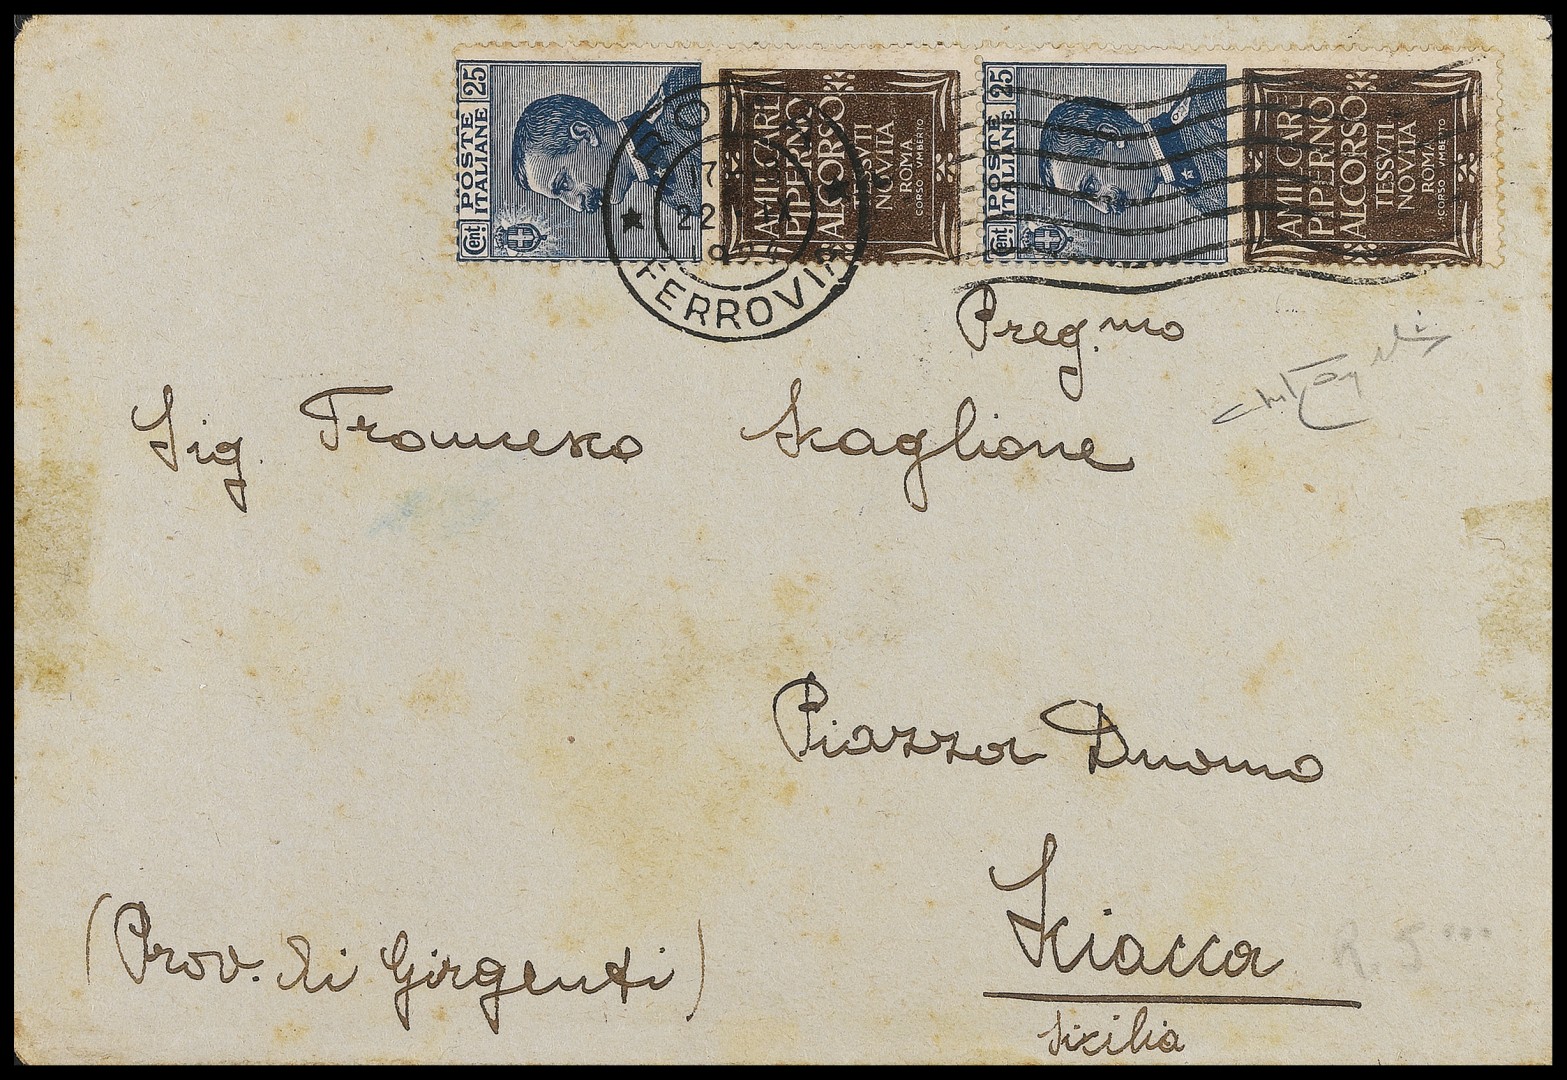 POSTE
ITALIANE
Cent
25
AMILCARE
PIPERNO
AL CORSO
TESSVTI
NOVITA
ROMA
CORSO VMBERTO
POSTE
ITALIANE
Cent
25
AMILCARE
PIPERNO
AL CORSO
TESSVTI
NOVITA
ROMA
CORSO VMBERTO
ROMA
17
22 IX
1924
FERROVIA
Preg.mo
Sig. Francesco Scaglione
Piazza Duomo
Sciacca
(Prov. di Girgenti)
Sicilia
R. 5